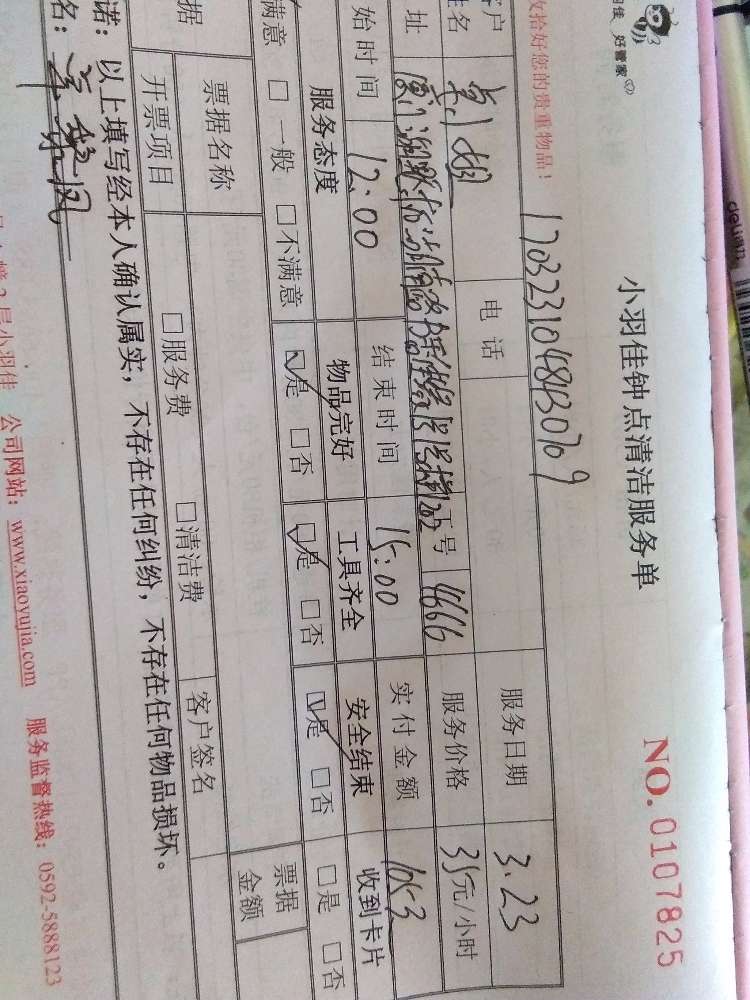 羽佳 好管家
小羽佳钟点清洁服务单
NO. 0107825
收拾好您的贵重物品!
1703231048430709
客户
姓名
电话
服务日期 3.23
址
工号 4666 服务价格 35元/小时
始时间 12:00 结束时间 15:00 实付金额 105
服务态度 物品完好 工具齐全 安全结束 收到卡片
满意 □一般 □不满意 □是 □否 □是 □否 □是 □否 □是 □否
据 票据名称 票据金额
开票项目 □服务费 □清洁费 客户签名
诺:以上填写经本人确认属实,不存在任何纠纷,不存在任何物品损坏。
名:
公司网站:www.xiaoyujia.com 服务监督热线:0592-5888123
deli